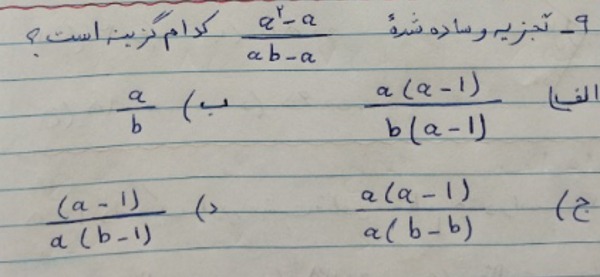 ۹ـ تجزیه و ساده شدهٔ (a۲-a)/(ab-a) کدام گزینه است؟
الف) a(a-1)/b(a-1) ب) a/b
ج) a(a-1)/a(b-b) د) (a-1)/a(b-1)